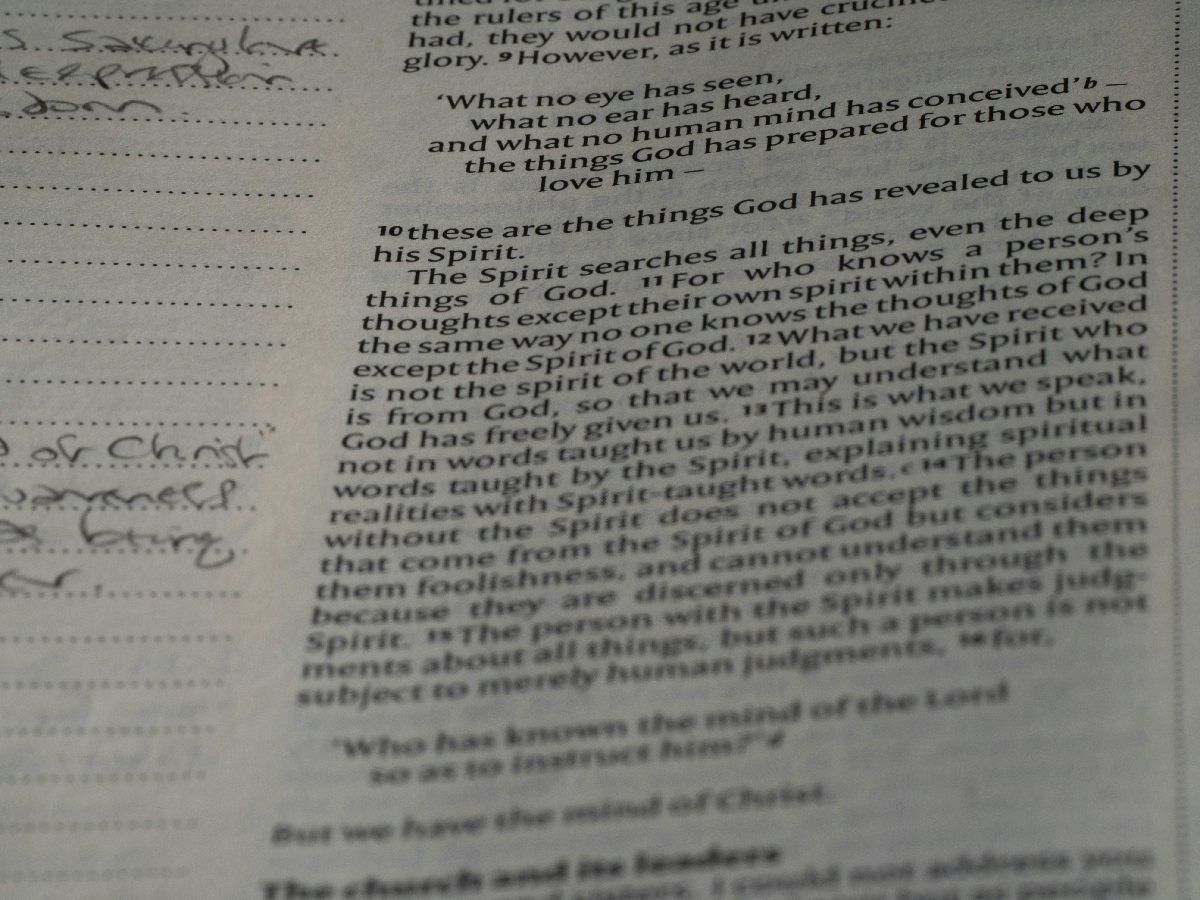 the rulers of this age
had, they would not have
glory. 9 However, as it is written:
'What no eye has seen,
what no ear has heard,
and what no human mind has conceived' b —
the things God has prepared for those who
love him —
10 these are the things God has revealed to us by
his Spirit.
The Spirit searches all things, even the deep
things of God. 11 For who knows a person's
thoughts except their own spirit within them? In
the same way no one knows the thoughts of God
except the Spirit of God. 12 What we have received
is not the spirit of the world, but the Spirit who
is from God, so that we may understand what
God has freely given us. 13 This is what we speak,
not in words taught us by human wisdom but in
words taught by the Spirit, explaining spiritual
realities with Spirit-taught words. c 14 The person
without the Spirit does not accept the things
that come from the Spirit of God but considers
them foolishness, and cannot understand them
because they are discerned only through the
Spirit. 15 The person with the Spirit makes judg-
ments about all things, but such a person is not
subject to merely human judgments, 16 for,
'Who has known the mind of the Lord
so as to instruct him?' d
But we have the mind of Christ.
The church and its leaders
I could not address you
of Christ
bring